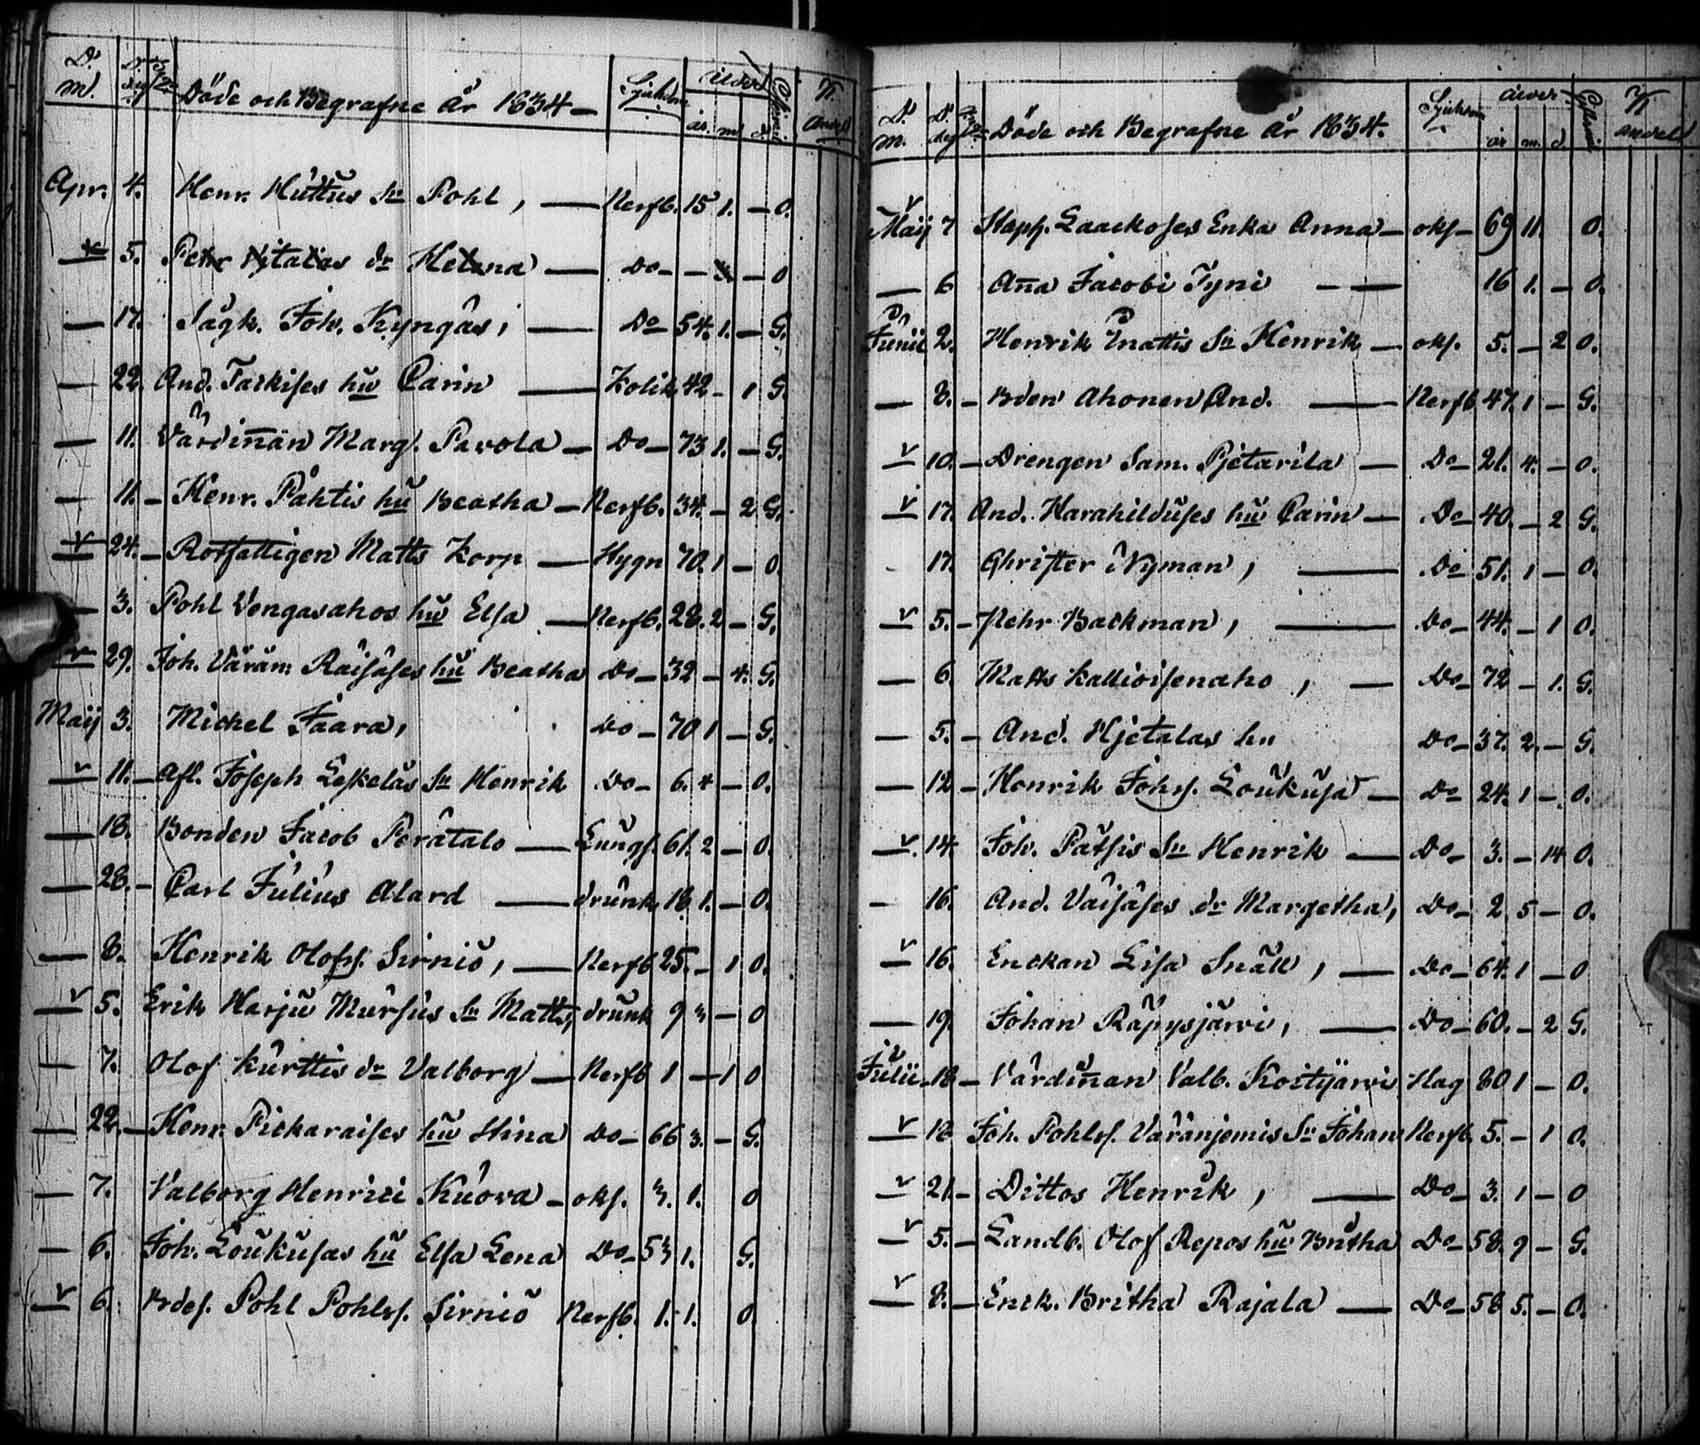 D. m. D. dag Döde och Begrafne År 1834 Sjukdom Ålder år. m. d.
Apr. 4. Henr. Huttus Sn Pohl, Nerfb. 15 1. — O.
— 5. Petr dr Helena Do — — — O
— 17. Johr. Kyngäs, Do 54. 1. — G.
— 22. And. Tarkises hu Carin Kolik 42 — 1 G.
— 11. Värdinnan Marg. Pavola — Do — 73 1. — G.
— 11. — Henr. Påhtis hu Beatha — Nerfb. 34. — 2 G.
— 24. — Rotfattigen Matts Korp — Hygn 70. 1 — O.
— 3. Pohl Vengasahos hu Elsa — Nerfb. 28. 2 — G.
— 29. Joh. Räisäses hu Beatha Do — 32 — 4. G.
Maij 3. Michel Jaara, Do — 70 1 — G.
— 11. — Afl. Joseph Leskeläs Sn Henrik Do — 6. 4 — O.
— 18. Bonden Jacob Perätalo — Lungs. 61. 2 — O.
— 28. — Carl Julius Alard — drunk. 18. 1. — O.
— 8. Henrik Olofss. Sirniö, — Nerfb 25. — 1 O.
— 5. Erik Harju Mursus Sn Matts, drunk 9 3 — O
— 7. Olof Kurttis dr Valborg — Nerfb 1 — 1 O
— 22. — Henr. Pickaraises hu Stina Do — 66 3. — G.
— 7. Valborg Henrici Kuova — oks. 3. 1. O
— 6. Joh. Loukusas hu Elsa Lena Do — 53 1. G.
— 6. Pohl Pohlss. Sirniö Nerfb. 1. 1. O.
D. m. D. dag Döde och Begrafne År 1834. Sjukdom Ålder år m. d
Maij 7 Enka Anna — oks — 69 11. O.
— 6 Anna Jacobi Tyni — — 16 1. — O.
Junii 2. Henrik Inattis Sn Henrik — oks. 5. — 2 O.
— 8. — Bden Ahonen And. — Nerfb 47. 1 — G.
— 10. — Drengen Sam. Pjetarila — Do — 21. 4. — O.
— 17. And. Harahilduses hu Carin — Do — 40. — 2 G.
17. Christer Nyman, — Do — 51. 1 — O.
— 5. — Pehr Backman, — Do — 44. — 1 O.
— 6. Matts Kallioisenaho, — Do — 72 — 1. G.
— 5. — And. Hjetalas hu Do — 37. 2. — G.
— 12 — Henrik Johss. Loukusa — Do 24. 1 — O.
— 14. Joh. Pätsis Sn Henrik — Do — 3. — 14 O.
— 16. And. Väisäses dr Margetha, Do — 2 5 — O.
— 16. Enckan Lisa Snäll, — Do — 64. 1 — O
— 19. Johan Räpysjärvi, — Do — 60. — 2 G.
Julii 18 — Värdinnan Valb. Kostijärvi Hag 80 1 — O.
— 18 Joh. Pohlss. Väränjemis Sn Johan Nerfb. 5. — 1 O.
— 21. — Dittos Henrik, — Do — 3. 1 — O
— 5. — Landb. Olof Repos hu Britha Do — 58. 9 — G.
— 8. — Enck. Britha Rajala — Do — 58 5. — O.